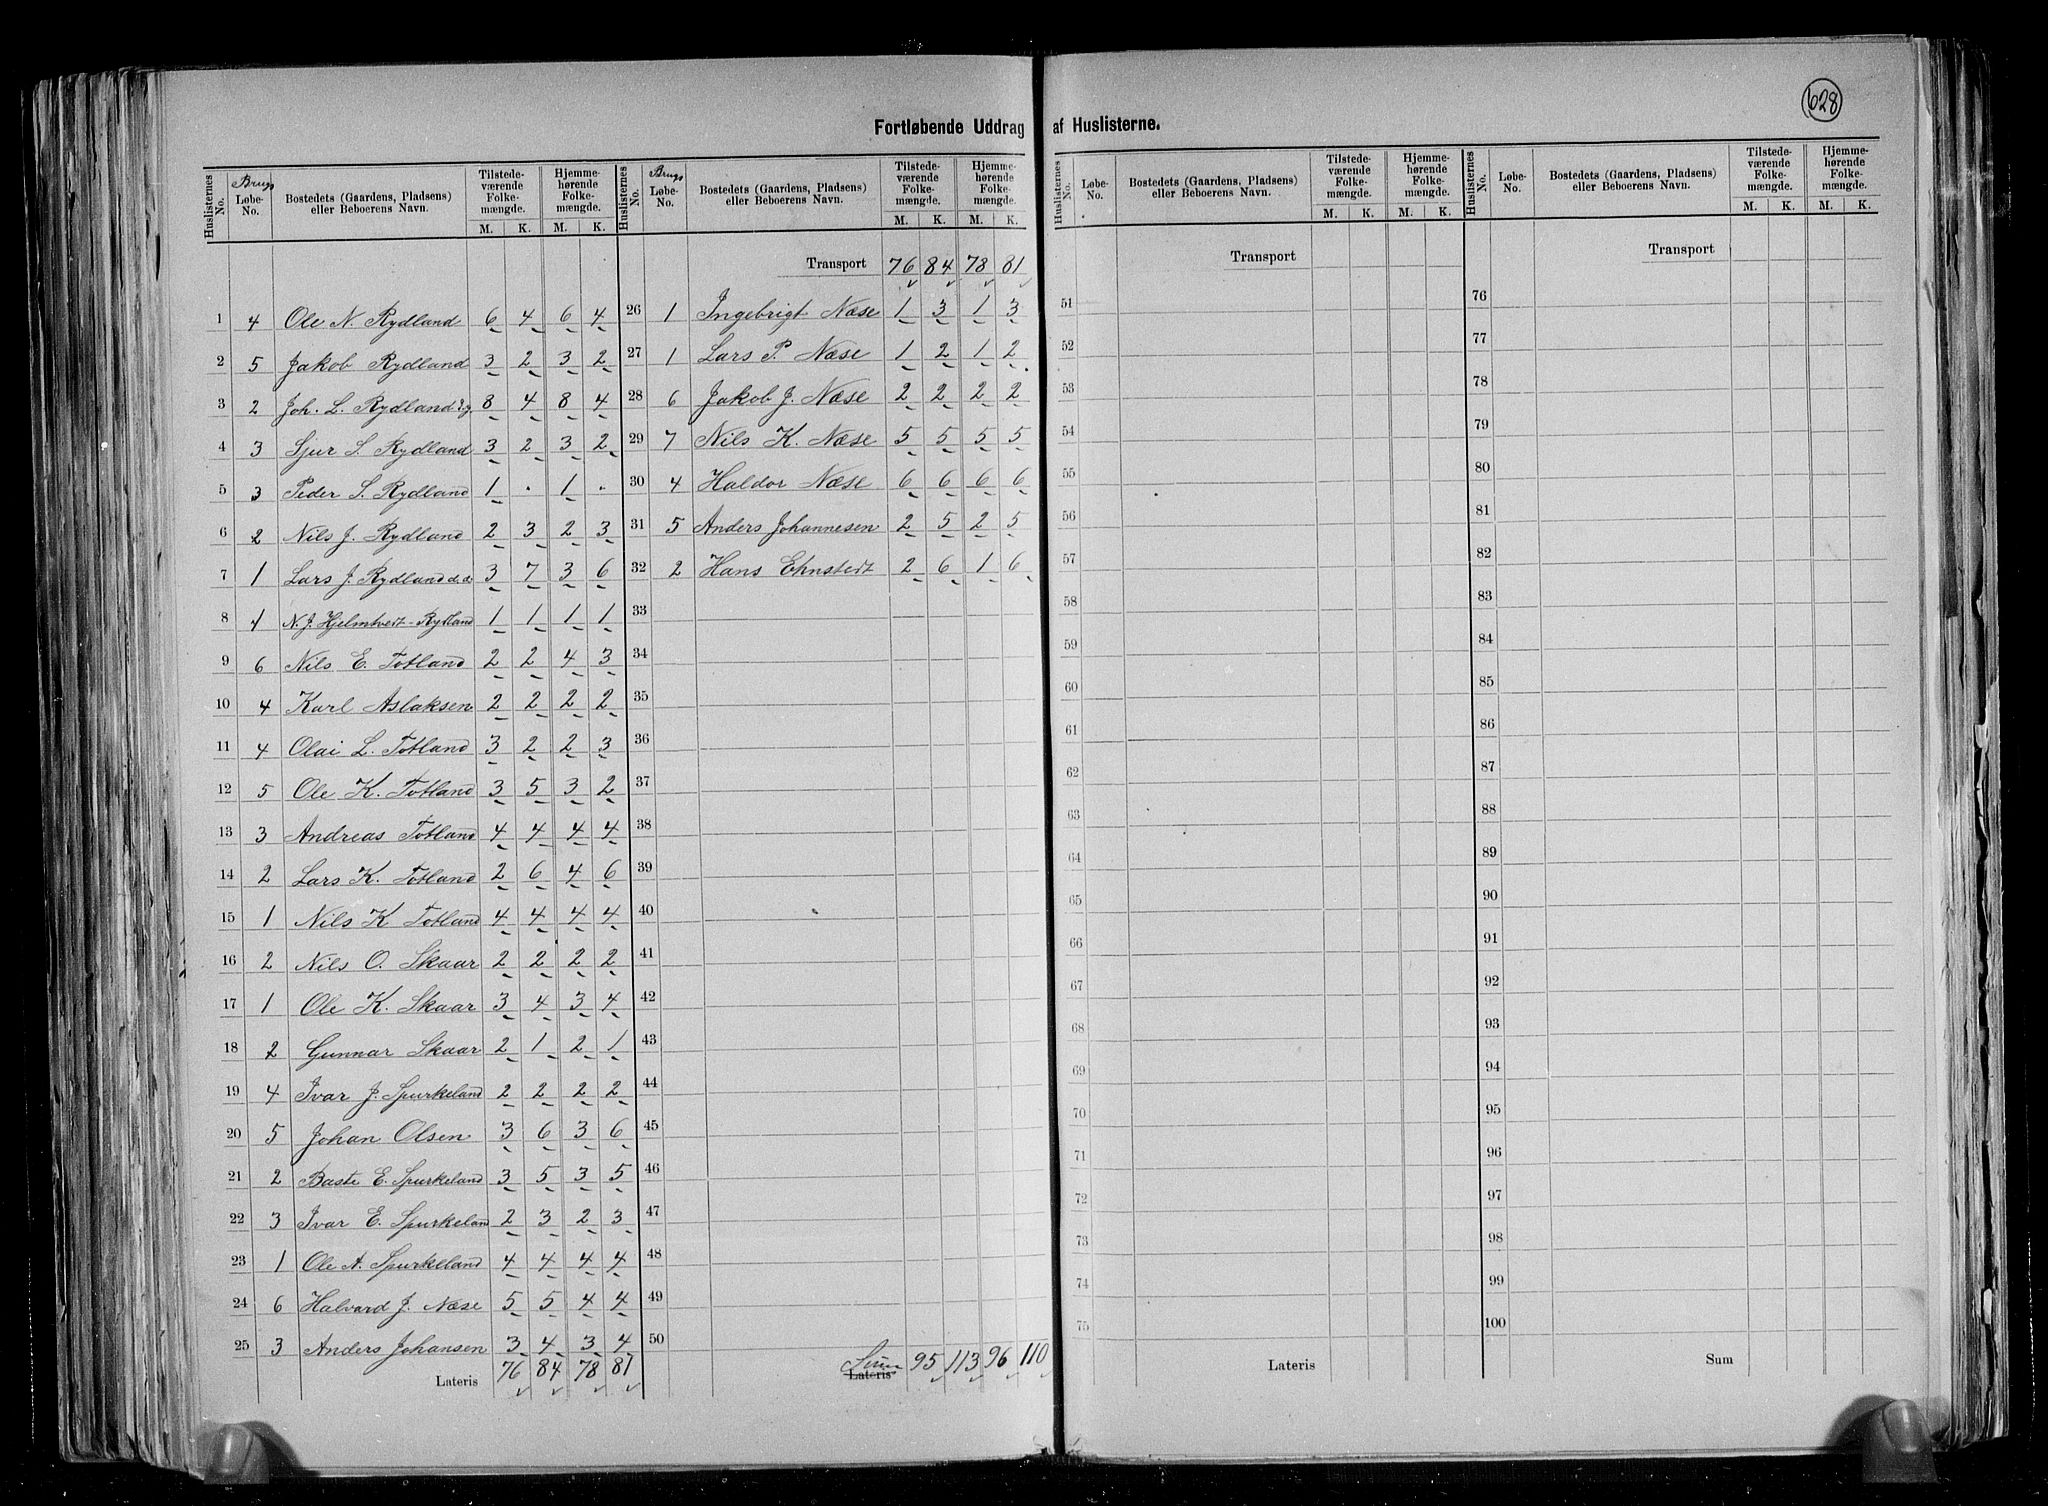 628
Fortløbende Uddrag af Huslisterne.
Huslisternes No. | Brugs Løbe-No. | Bostedets (Gaardens, Pladsens) eller Beboerens Navn. | Tilstedeværende Folkemængde. M. K. | Hjemmehørende Folkemængde. M. K.
1 4 Ole N. Rydland 6 4 6 4
2 5 Jakob Rydland 3 2 3 2
3 2 Joh. L. Rydland 8 4 8 4
4 3 Sjur S. Rydland 3 2 3 2
5 3 Peder S. Rydland 1 . 1 .
6 2 Nils J. Rydland 2 3 2 3
7 1 Lars J. Rydland d. æ. 3 7 3 6
8 1 N. J. Hjelmtvedt-Rydland 1 1 1 1
9 6 Nils E. Totland 2 2 4 3
10 4 Karl Aslaksen 2 2 2 2
11 4 Olai L. Totland 3 2 2 3
12 5 Ole K. Totland 3 5 3 2
13 3 Andreas Totland 4 4 4 4
14 2 Lars K. Totland 2 6 4 6
15 1 Nils K Totland 4 4 4 4
16 2 Nils O. Skaar 2 2 2 2
17 1 Ole K. Skaar 3 4 3 4
18 2 Gunnar Skaar 2 1 2 1
19 4 Ivar J. Spurkeland 2 2 2 2
20 5 Johan Olsen 3 6 3 6
21 2 Baste E. Spurkeland 3 5 3 5
22 3 Ivar E. Spurkeland 2 3 2 3
23 1 Ole A. Spurkeland 4 4 4 4
24 6 Halvard J. Næse 5 5 4 4
25 3 Anders Johansen 3 4 3 4
Lateris 76 84 78 81
Huslisternes No. | Brugs Løbe-No. | Bostedets (Gaardens, Pladsens) eller Beboerens Navn. | Tilstedeværende Folkemængde. M. K. | Hjemmehørende Folkemængde. M. K.
Transport 76 84 78 81
26 1 Ingebrigt Næse 1 3 1 3
27 1 Lars P. Næse 1 2 1 2
28 6 Jakob J. Næse 2 2 2 2
29 7 Nils K. Næse 5 5 5 5
30 4 Haldor Næse 6 6 6 6
31 5 Anders Johannesen 2 5 2 5
32 2 Hans Ehnstedt 2 6 1 6
33
34
35
36
37
38
39
40
41
42
43
44
45
46
47
48
49
50
Sum Lateris 95 113 96 110
Huslisternes No. | Løbe-No. | Bostedets (Gaardens, Pladsens) eller Beboerens Navn. | Tilstedeværende Folkemængde. M. K. | Hjemmehørende Folkemængde. M. K.
Transport
51
52
53
54
55
56
57
58
59
60
61
62
63
64
65
66
67
68
69
70
71
72
73
74
75
Lateris
Huslisternes No. | Løbe-No. | Bostedets (Gaardens, Pladsens) eller Beboerens Navn. | Tilstedeværende Folkemængde. M. K. | Hjemmehørende Folkemængde. M. K.
Transport
76
77
78
79
80
81
82
83
84
85
86
87
88
89
90
91
92
93
94
95
96
97
98
99
100
Sum